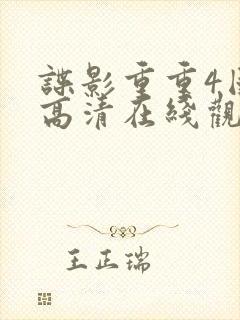 諜影重重4
高清在綫觀
王正瑞